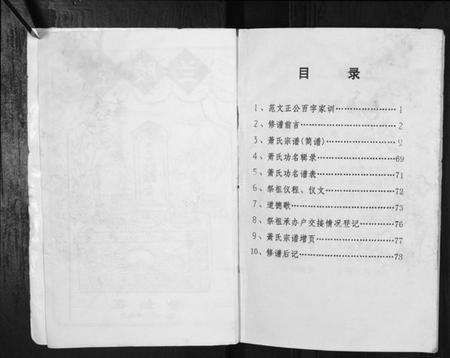 目 录
1、范文正公百字家训…………………1
2、修谱前言………………………………2
3、萧氏宗谱(简谱)……………………9
4、萧氏功名辑录………………………69
5、萧氏功名谱表………………………71
6、祭祖仪程、仪文……………………72
7、道德歌………………………………73
8、祭祖承办户交接情况登记…………76
9、萧氏宗谱增页………………………77
10、修谱后记……………………………78